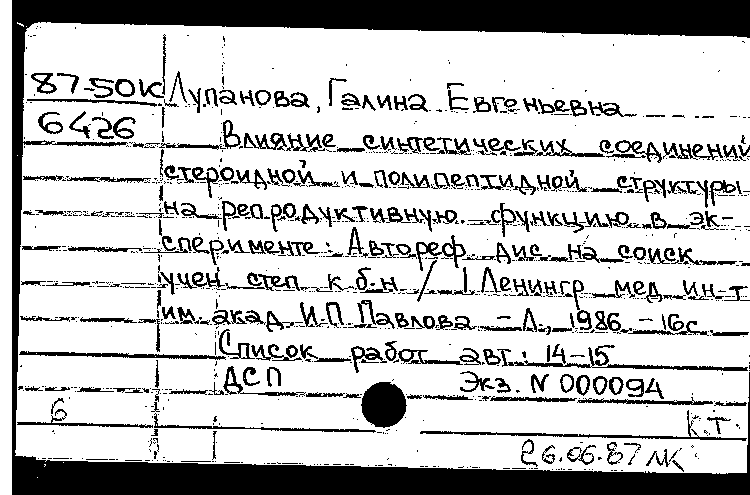 87-50К Лупанова, Галина Евгеньевна
6426 Влияние синтетических соединений
стероидной и полипептидной структуры
на репродуктивную функцию в эк-
сперименте: Автореф дис на соиск
учен степ к.б.н / 1 Ленингр мед ин-т
им. акад. И.П. Павлова - Л., 1986 - 16с.
Список работ авт.: 14-15
ДСП Экз. N 000094
6 К.Т.
26.06.87 ЛК